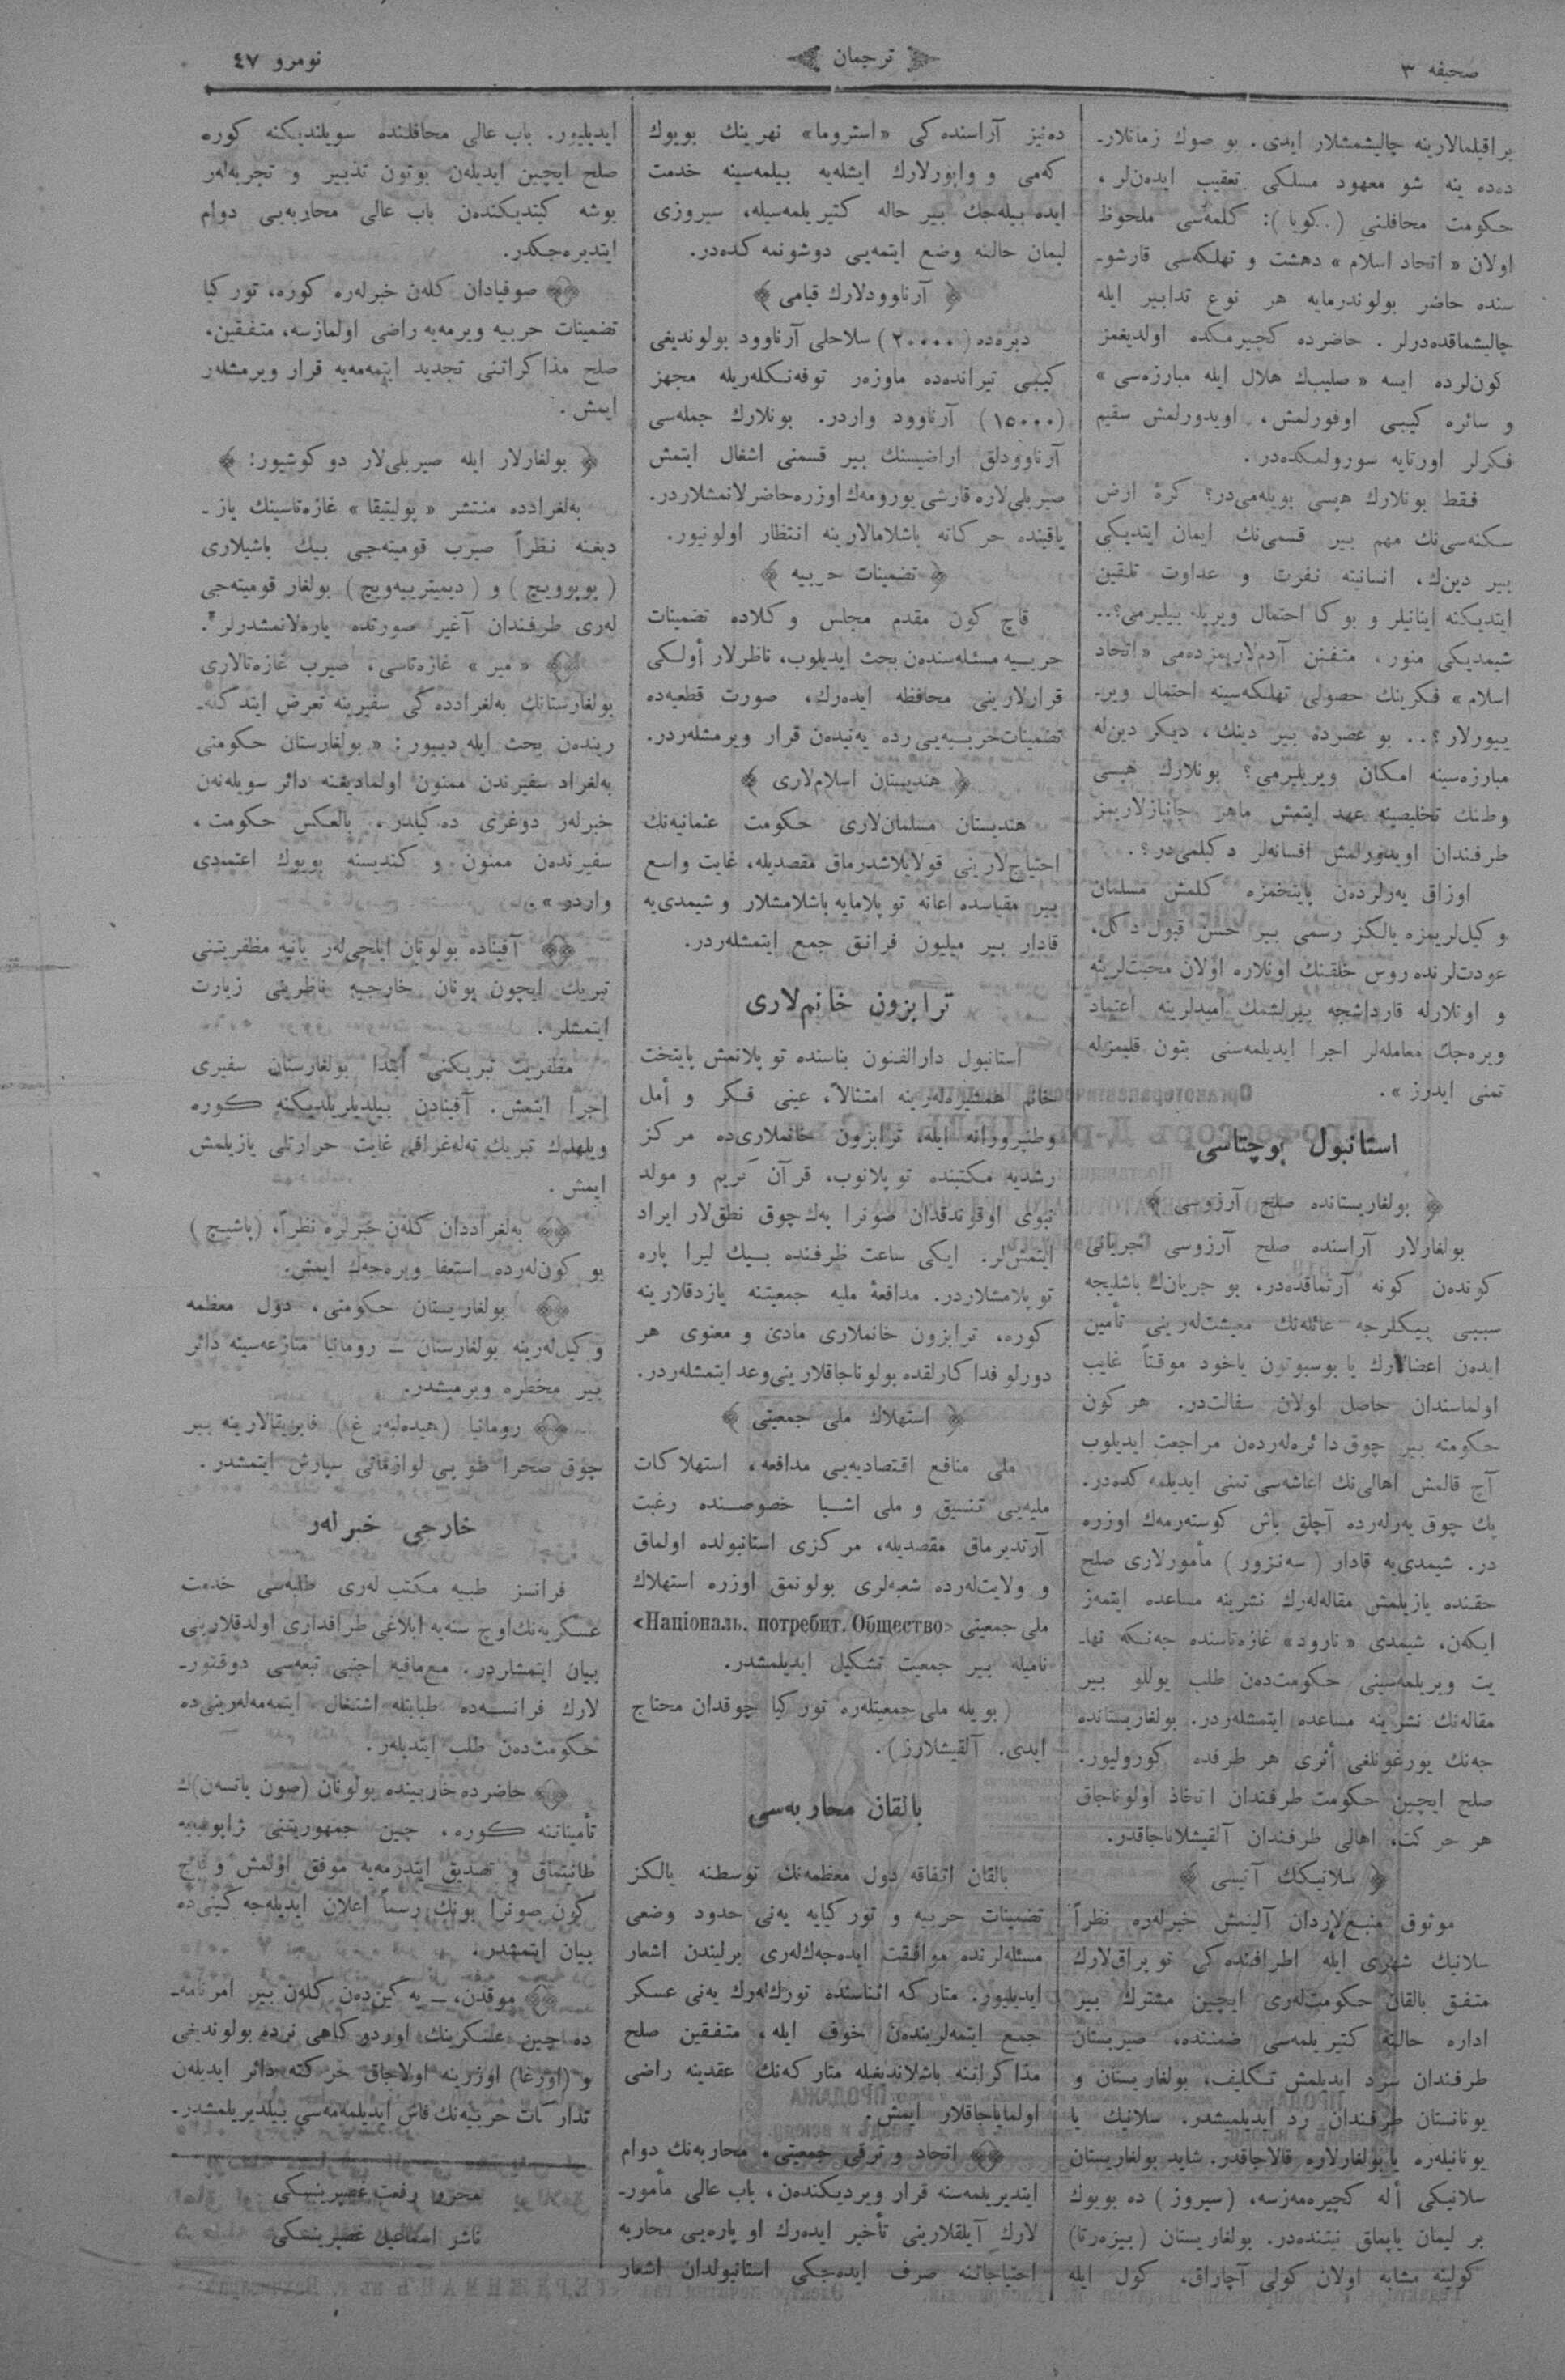 صحیفه ٣
ترجمان
نومرو ٤٧
براقیلمالارینه چالیشمشلار ایدی. بو صوك زمانلار-
ده‌ده ینه شو معهود مسلكی تعقیب ایده‌ن‌لر،
حكومت محافلنی (..كویا): كلمه‌سی ملحوظ
اولان « اتحاد اسلام » دهشت و تهلكه‌سی قارشو-
سنده حاضر بولوندرمایه هر نوع تدابیر ایله
چالیشماقده‌درلر. حاضرده كچیرمكده اولدیغمز
كون‌لرده ایسه « صلیب‌ك هلال ایله مبارزه‌سی »
و سائره كیبی اوفورلمش، اویدورلمش سقیم
فكرلر اورتایه سورولمكده‌در.
فقط بونلارك هپسی بویله‌می‌در؟ كرۀ ارض
سكنه‌سی‌نك مهم بیر قسمی‌نك ایمان ایتدیكی
بیر دین‌ك، انسانیته نفرت و عداوت تلقین
ایتدیكنه اینانیلر و بو كا احتمال ویریله بیلیرمی؟..
شیمدیكی منور، متفنن آدم‌لاریمزده‌می « اتحاد
اسلام » فكرینك حصولی تهلكه‌سینه احتمال ویر-
ییورلار؟.. بو عصرده بیر دینك، دیكر دین‌له
مبارزه‌سینه امكان ویریلیرمی؟ بونلارك هپسی
وطنك تخلیصینه عهد ایتمش ماهر جانبازلاریمز
طرفندان اویدورلمش افسانه‌لر دكیلمی‌در؟.
اوزاق یه‌رلردن پایتختمزه كلمش مسلمان
وكیل‌لریمزه یالكز رسمی بیر حسن قبول دكل،
عودت‌لرنده روس خلقنك اونلاره اولان محبت‌لرینه
و اونلارله قارداشجه بیرلشمك امیدلرینه اعتماد
ویره‌جك معامله‌لر اجرا ایدیلمه‌سنی بتون قلبمزله
تمنی ایدرز ».
استانبول پوچتاسی
﴿ بولغاریستانده صلح آرزوسی ﴾
بولغارلار آراسنده صلح آرزوسی جریانی
كوندەن كونه آرتماقده‌در، بو جریان‌ك باشلیجه
سببی بیكلرجه عائله‌نك معیشت‌لەرینی تأمین
ایدەن اعضالارك یا بوسبوتون یاخود موقتاً غایب
اولماسندان حاصل اولان سفالت‌در. هر كون
حكومته بیر چوق دائره‌لەردەن مراجعت ایدیلوب
آچ قالمش اهالی‌نك اعاشه‌سی تمنی ایدیلمه كدەدر.
پك چوق یەرلەرده آچلق باش كوستەرمەك اوزره
در. شیمدی‌یه قادار (سه‌نزور) مأمورلاری صلح
حقنده یازیلمش مقاله‌لەرك نشرینه مساعده ایتمەز
ایكەن، شیمدی « نارود » غازه‌تاسنده جه‌نكه نها-
یت ویریلمه‌سینی حكومت‌دەن طلب یوللو بیر
مقاله‌نك نشرینه مساعده ایتمشلەردر. بولغاریستانده
جه‌نك یورغونلغی أثری هر طرفده كورولیور.
صلح ایچین حكومت طرفندان اتخاذ اولوناجاق
هر حركت، اهالی طرفندان آلقیشلاناجاقدر.
﴿ سلانیكك آتیسی ﴾
موثوق منبع‌لاردان آلینمش خبرلەره نظراً
سلانیك شهری ایله اطرافنده‌كی توپراق‌لارك
متفق بالقان حكومت‌لەری ایچین مشترك بیر
اداره حالنه كتیریلمه‌سی ضمننده، صربستان
طرفندان سرد ایدیلمش تكلیف، بولغاریستان و
یونانستان طرفندان رد ایدیلمیشدر. سلانیك یا
یونانیلەره یا بولغارلاره قالاجاقدر. شاید بولغاریستان
سلانیكی أله كچیره‌مەزسه، (سیروز) ده بویوك
بر لیمان یاپماق نیتنده‌در. بولغاریستان (بیزه‌رتا)
كولینه مشابه اولان كولی آچاراق، كول ایله
دەنیز آراسنده‌كی « استروما » نهرینك بویوك
كه‌می و واپورلارك ایشله‌یه بیلمه‌سینه خدمت
ایده بیله‌جك بیر حاله كتیریلمه‌سیله، سیروزی
لیمان حالنه وضع ایتمه‌یی دوشونمه كدەدر.
﴿ آرناوودلارك قیامی ﴾
دبره‌ده (٢٠٠٠٠) سلاحلی آرناوود بولوندیغی
كیبی تیرانده‌ده ماوزەر توفه‌نكلەریله مجهز
(١٥٠٠٠) آرناوود واردر. بونلارك جمله‌سی
آرناوودلق اراضیسنك بیر قسمنی اشغال ایتمش
صیربلی‌لاره قارشی یورومه‌ك اوزره حاضرلانمشلاردر.
یاقینده حركاته باشلامالارینه انتظار اولونیور.
﴿ تضمینات حربیه ﴾
قاچ كون مقدم مجلس وكلاده تضمینات
حربیه مسئله‌سندەن بحث ایدیلوب، ناظرلار أولكی
قرارلارینی محافظه ایدەرك، صورت قطعیه‌ده
تضمینات‌حربیه‌یی رده یەنیدەن قرار ویرمشلەردر.
﴿ هندیستان اسلام‌لاری ﴾
هندستان مسلمان‌لاری حكومت عثمانیه‌نك
احتیاج‌لارینی قولایلاشدرماق مقصدیله، غایت واسع
بیر مقیاسده اعانه توپلامایه باشلامشلار و شیمدی‌یه
قادار بیر میلیون فرانق جمع ایتمشلەردر.
ترابزون خانم‌لاری
استانبول دارالفنون بناسنده توپلانمش پایتخت
خانم همشیره‌لەرینه امتثالاً، عینی فكر و أمل
وطنپرورانه ایله، ترابزون خانملاری‌ده مركز
رشدیه مكتبنده توپلانوب، قرآن كریم و مولد
نبوی اوقوندقدان صوڭرا پەك چوق نطق‌لار ایراد
ایتمش‌لر. ایكی ساعت ظرفنده بیك لیرا پاره
توپلامشلاردر. مدافعۀ ملیه جمعیتنه یازدقلارینه
كوره، ترابزون خانملاری مادی و معنوی هر
دورلو فداكارلقده بولوناجاقلارینی‌وعد ایتمشلەردر.
﴿ استهلاك ملی جمعیتی ﴾
ملی منافع اقتصادیه‌یی مدافعه، استهلاكات
ملیه‌یی تنسیق و ملی اشیا خصوصنده رغبت
آرتدیرماق مقصدیله، مركزی استانبولده اولماق
و ولایت‌لەرده شعبه‌لری بولونمق اوزره استهلاك
ملی جمعیتی «Націоналъ. потребит. Общество»
نامیله بیر جمعیت تشكیل ایدیلمشدر.
(بویله ملی جمعیتلەره توركیا چوقدان محتاج
ایدی. آلقیشلارز).
بالقان محاربه‌سی
بالقان اتفاقه دول معظمه‌نك توسطنه یالكز
تضمینات حربیه و توركیایه یەنی حدود وضعی
مسئله‌لرنده موافقت ایدەجەك‌لەری برلیندن اشعار
ایدیلیور. متاركه اثناسنده تورك‌لەرك یەنی عسكر
جمع ایتمه‌لریندەن خوف ایله، متفقین صلح
مذاكراتنه باشلاندیغیله متاركه‌نك عقدینه راضی
اولمایاجاقلار ایمش.
اتحاد و ترقی جمعیتی، محاربه‌نك دوام
ایتدیریلمه‌سنه قرار ویردیكندەن، باب عالی مأمور-
لارك آیلقلارینی تأخیر ایدەرك او پاره‌یی محاربه
احتیاجاتنه صرف ایدەجكی استانبولدان اشعار
ایدیلیور. باب عالی محافلنده سویلندیكنه كوره
صلح ایچین ایدیلەن بوتون تدبیر و تجربه‌لەر
بوشه كیتدیكندەن باب عالی محاربه‌یی دوام
ایتدیره‌جكدر.
صوفیادان كلەن خبرلەره كوره، توركیا
تضمینات حربیه ویرمه‌یه راضی اولمازسه، متفقین،
صلح مذاكراتنی تجدید ایتمه‌مه‌یه قرار ویرمشلەر
ایمش.
﴿ بولغارلار ایله صیربلی‌لار دوكوشیور! ﴾
بەلغرادده منتشر « پولیتیقا » غازه‌تاسینك یاز-
دیغنه نظراً صیرب قومیته‌جی بیك باشیلاری
(پوپوویچ) و (دیمیتریه‌ویچ) بولغار قومیته‌جی
لەری طرفندان آغیر صورتده یاره‌لانمشدرلر.
« میر » غازه‌تاسی، صیرب غازه‌تالاری
بولغارستانك بەلغرادده‌كی سفیرینه تعرض ایتدكله-
ریندەن بحث ایله دییور: « بولغارستان حكومتی
بەلغراد سفیرندن ممنون اولمادیغنه دائر سویله‌نەن
خبرلەر دوغری دەكیلدر، بالعكس حكومت،
سفیرندەن ممنون و كندیسنه بویوك اعتمادی
واردر ».
آفیناده بولونان ایلچی‌لەر یانیه مظفریتنی
تبریك ایچون یونان خارجیه ناظرینی زیارت
ایتمشلر.
مظفریت تبریكنی أبتدا بولغارستان سفیری
اجرا ایتمش. آفینادن بیلدیریلدیكنه كوره
ویلهلم‌ك تبریك تەله‌غرافی غایت حرارتلی یازیلمش
ایمش.
بەلغراددان كلەن خبرلره نظراً، (پاشیچ)
بو كون‌لەرده استعفا ویره‌جەك ایمش.
بولغاریستان حكومتی، دول معظمه
وكیل‌لەرینه بولغارستان — رومانیا منازعه‌سینه دائر
بیر مخطره ویرمیشدر.
رومانیا (هیده‌لبەرغ) فابریقالارینه بیر
چوق صحرا طوپی لوازماتی سپارش ایتمشدر.
خارجی خبرلەر
فرانسز طبیه مكتب‌لەری طلبه‌سی خدمت
عسكریه‌نك‌اوچ سنه‌یه ابلاغی طرافداری اولدقلارینی
بیان ایتمشلردر. مع‌مافیه اجنبی تبعه‌سی دوقتور-
لارك فرانسه‌ده طبابتله اشتغال ایتمه‌مه‌لەرینی‌ده
حكومت‌دەن طلب ایتدیلەر.
حاضرده خاربینده بولونان (صون یاتسەن)ك
تأمیناتنه كوره، چین جمهوریتنی ژاپونیایه
طانیتماق و تصدیق ایتدرمه‌یه موفق اولمش و قاچ
كون صوڭرا بونك رسماً اعلان ایدیله‌جه كینی‌ده
بیان ایتمشدر.
موقدن، — په‌كین‌دەن كلەن بیر امرنامه-
ده چین عسكرینك اوردوكاهی نرده بولوندیغی
و (اورغا) اوزرینه اولاجاق حركته دائر ایدیلەن
تداركات حربیه‌نك فاش ایدیلمه‌مه‌سی بیلدیریلمشدر-
محرر رفعت غصپرینسكی
ناشر اسماعیل غصپرینسكی